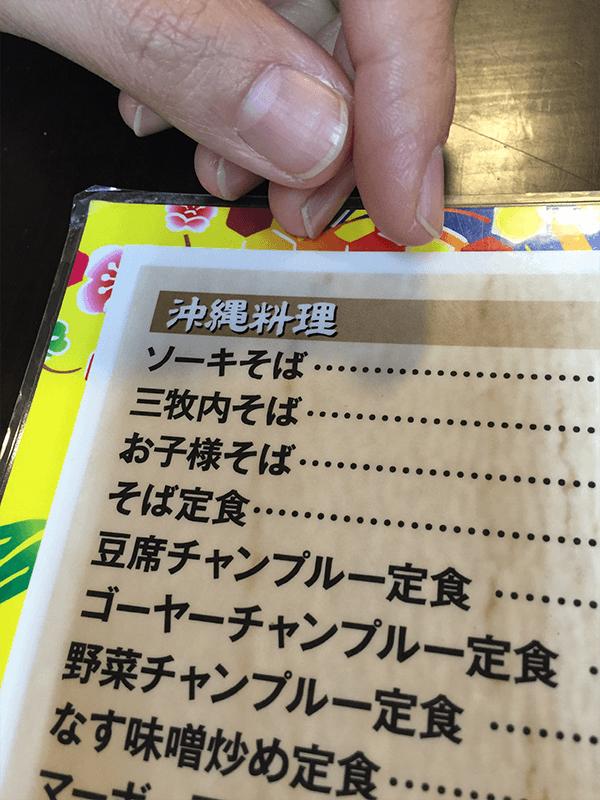 沖縄料理
ソーキそば
三牧内そば
お子様そば
そば定食
豆席チャンプルー定食
ゴーヤーチャンプルー定食
野菜チャンプルー定食
なす味噌炒め定食